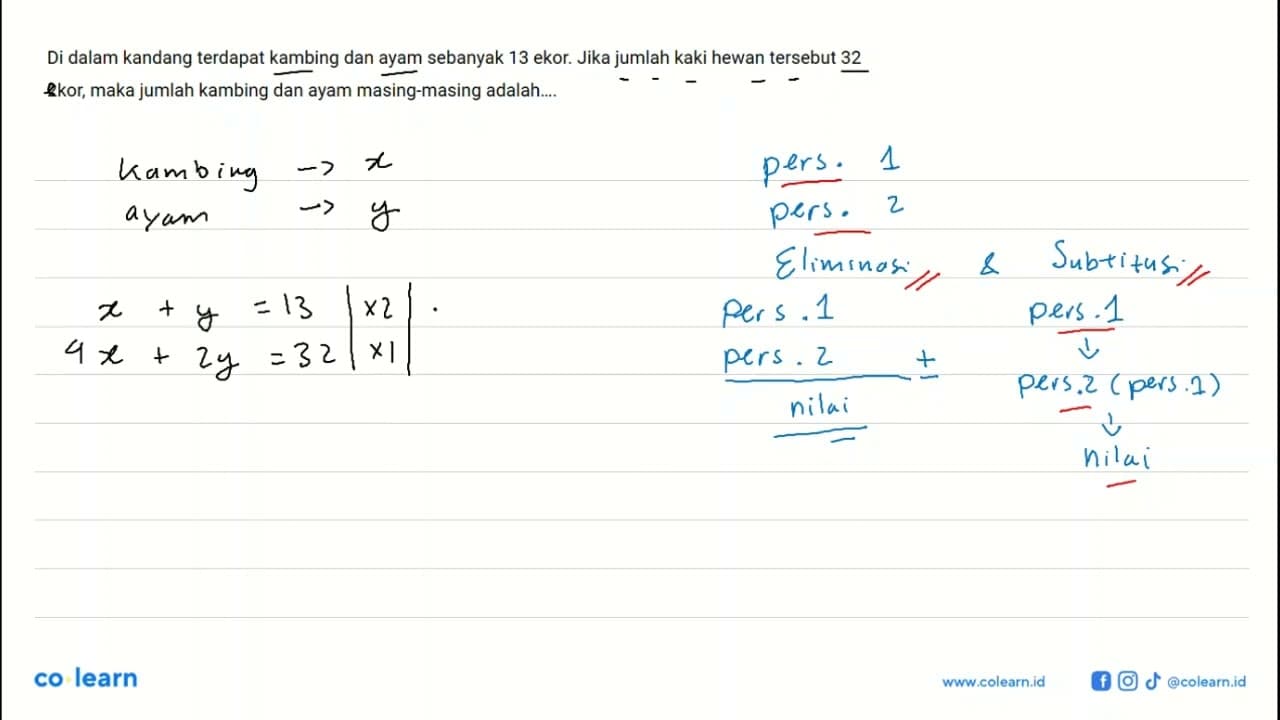 Di dalam kandang terdapat kambing dan ayam sebanyak 13 ekor. Jika jumlah kaki hewan tersebut 32
ekor, maka jumlah kambing dan ayam masing-masing adalah....
kambing -> x
ayam -> y
x + y = 13 | x2 | .
4x + 2y = 32 | x1 |
pers. 1
pers. 2
Eliminasi & Subtitusi
pers. 1
pers. 2 +
nilai
pers. 1
↓
pers. 2 (pers. 1)
↓
nilai
co learn
www.colearn.id
@colearn.id